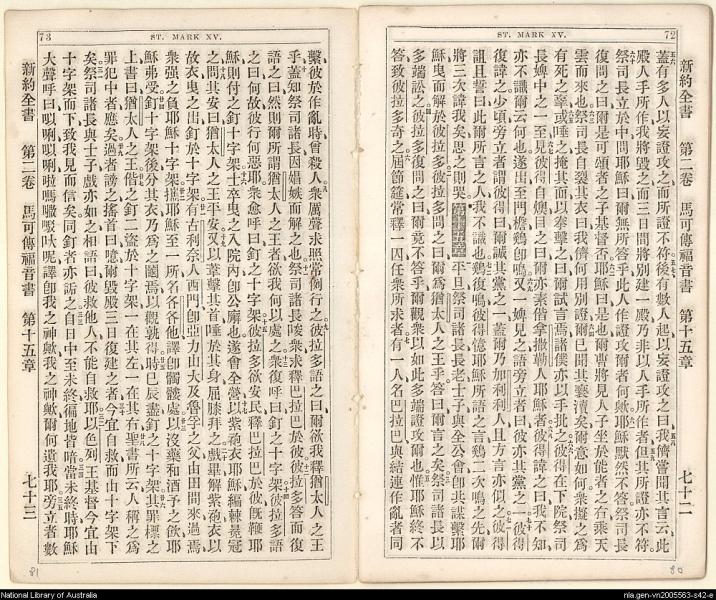 ST. MARK XV.
72
蓋有多人以妄證攻之而所證不符後有數人起以妄證攻之曰我儕嘗聞其言云此
殿人手所作我將毀之而三日間將別建一殿乃非以人手所作者但其所證亦不符
祭司長立於中間耶穌曰爾無所答乎此人作證攻爾者何歟耶穌默然不答祭司長
復問之曰爾是可頌者之子基督否耶穌曰是也爾曹將見人子坐於能者之右乘天
雲而來也祭司長自裂其衣曰我儕何用別證爾已聞其褻瀆矣爾意如何衆擬之爲
有死之辜或唾之掩其面以拳擊之曰爾試言焉諸僕亦以手批之彼得在下院祭司
長婢中之一至見彼得自燠目之曰爾亦素偕拿撒勒人耶穌者彼得諱之曰我不知
亦不識爾云何也遂出至門檐鷄卽鳴又一婢見之語旁立者曰彼亦其黨之一彼得
復諱之少頃旁立者謂彼得曰爾誠其黨之一蓋爾乃加利利人且方言亦似之彼得
詛且誓曰此爾所言之人我不識也鷄復鳴彼得憶耶穌所語之言鷄二次鳴之先爾
將三次諱我矣思之則哭 第十五章 平旦祭司諸長長老士子與全公會卽共謀繫耶
穌曳而解於彼拉多彼拉多問之曰爾爲猶太人之王乎答曰爾言之矣祭司諸長以
多端訟之彼拉多復問之曰爾竟不答乎爾觀衆以如此多端證攻爾也惟耶穌終不
答致彼拉多奇之屆節筵常釋一囚任衆所求者有一人名巴拉巴與結連作亂者同
新約全書 第二卷 馬可傳福音書 第十五章 七十二
80
73
ST. MARK XV.
繫彼於作亂時曾殺人衆厲聲求照常例行之彼拉多語之曰爾欲我釋猶太人之王
乎蓋知祭司諸長因媢嫉而解之也祭司諸長唆衆求釋巴拉巴於彼彼拉多答而復
語之曰然則爾所謂猶太人之王者欲我何以處之衆復呼曰釘之十字架彼拉多語
之曰何故彼行何惡耶衆愈呼曰釘之十字架彼拉多欲安民釋巴拉巴於彼旣鞭耶
穌則付之釘十字架士卒曳之入院內卽公廨也遂會全營以紫袍衣耶穌編棘冕冠
之問其安曰猶太人之王平安又以葦擊其首唾於其身屈膝拜之戲畢解紫袍衣以
故衣曳之出釘於十字架有古利奈人西門卽亞力山大及魯孚之父由田間來過焉
衆强之負耶穌十字架攜耶穌至一所名各各他譯卽髑髏處以沒藥和酒予之飲耶
穌弗受釘十字架後分其衣乃爲之鬮焉以觀孰得時巳辰盡釘之十字架其罪標之
上書曰猶太人之王偕之釘二盜於十字架一在其左一在其右應聖書所云人稱之爲
罪犯中者應矣過者謗之搖首曰噫爾毀殿三日復建之者今宜自救而由十字架下
矣祭司諸長與士子戲亦如之相語曰彼救他人不能自救耶以色列王基督今宜由
十字架而下致我見而信矣同釘者亦詬之自日中至未終徧地皆暗當未終時耶穌
大聲呼曰譯卽我之神歟我之神歟爾何遺我耶旁立者數
新約全書 第二卷 馬可傳福音書 第十五章 七十三
81
National Library of Australia
nla.gen-vn2005563-s42-e